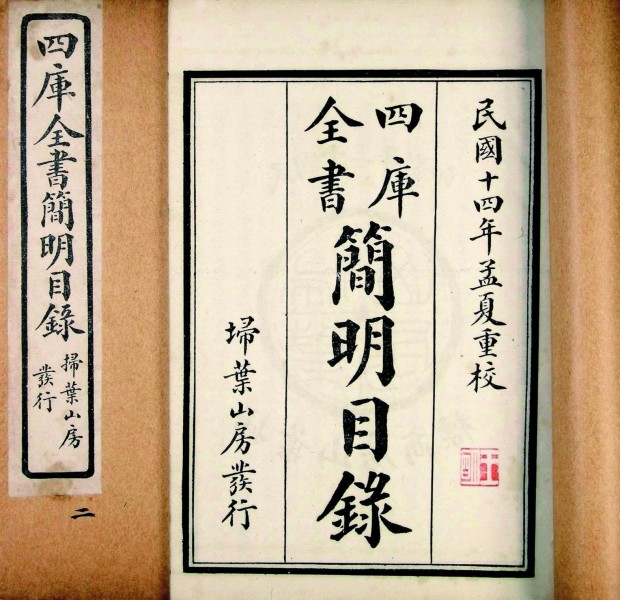 四庫全書簡明目錄
掃葉山房
發行
二
民國十四年孟夏重校
四庫
全書
簡明目錄
埽葉山房發行